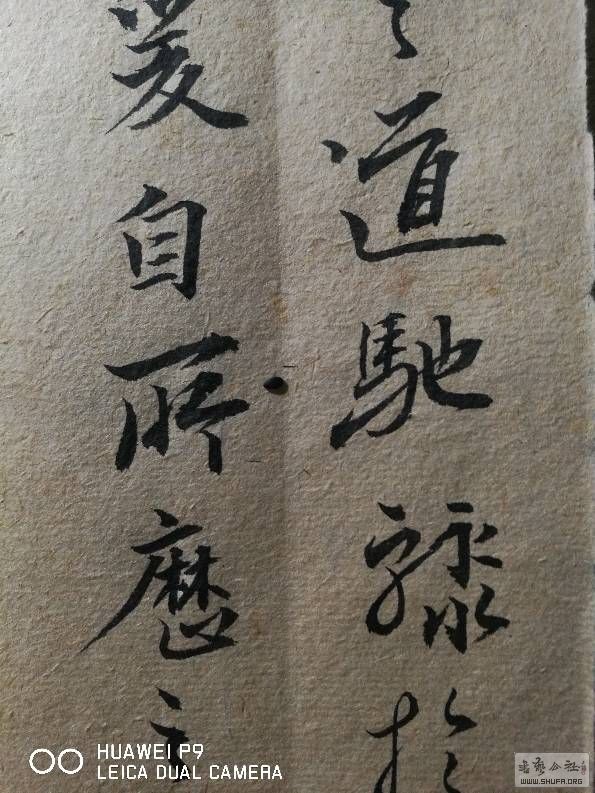 道馳驟於
爰自所歷
HUAWEI P9
LEICA DUAL CAMERA
WWW.SHUFA.ORG